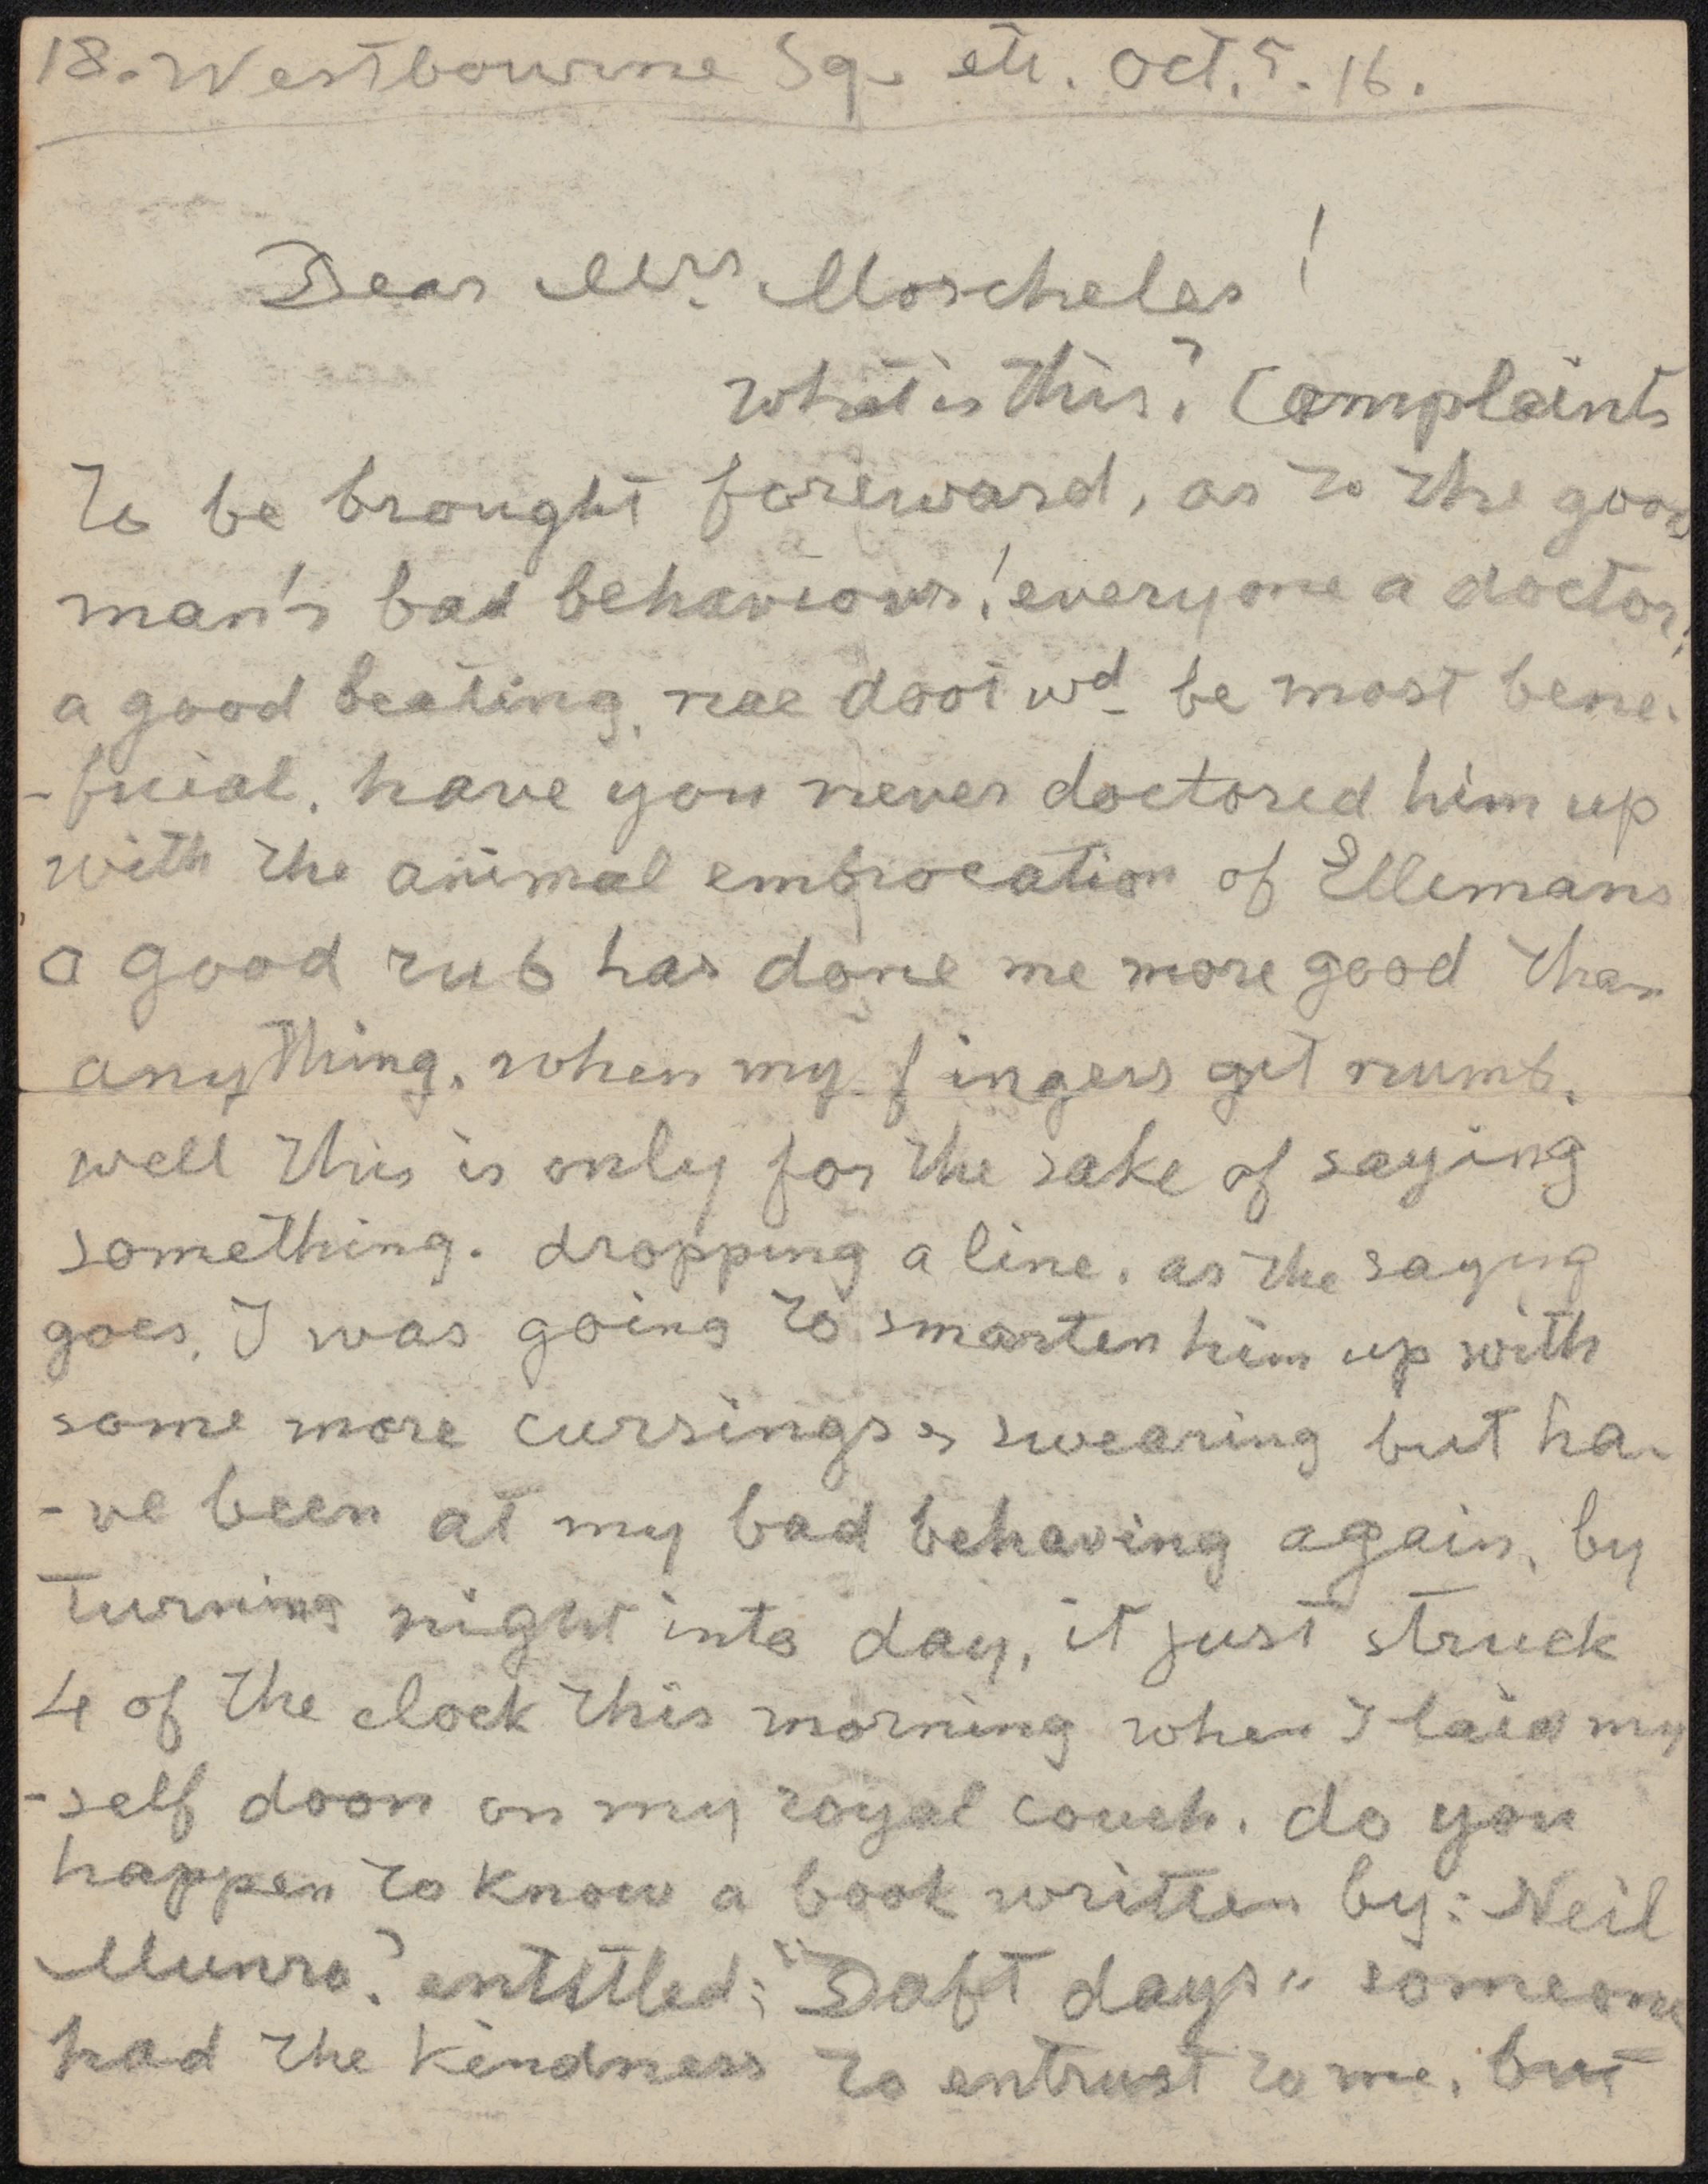 18. Westbourne Sq. etc. Oct. 5. 16.
Dear Mrs. Moscheles!
what is this? Complaints
to be brought foreward, as to the good
man's bad behaviour! everyone a doctor!
a good beating, nae doot wd be most bene-
-ficial. have you never doctored him up
with the animal embrocation of Ellimans
a good rub has done me more good than
anything, when my fingers get numb.
well this is only for the sake of saying
something. dropping a line. as the saying
goes. I was going to smarten him up with
some more cursings & swearing but ha-
-ve been at my bad behaving again, by
turning night into day, it just struck
4 of the clock this morning when I laid my
-self doon on my royal couch. do you
happen to know a book written by: Neil
Munro? entitled: "Daft days" someone
had the kindness to entrust to me. but